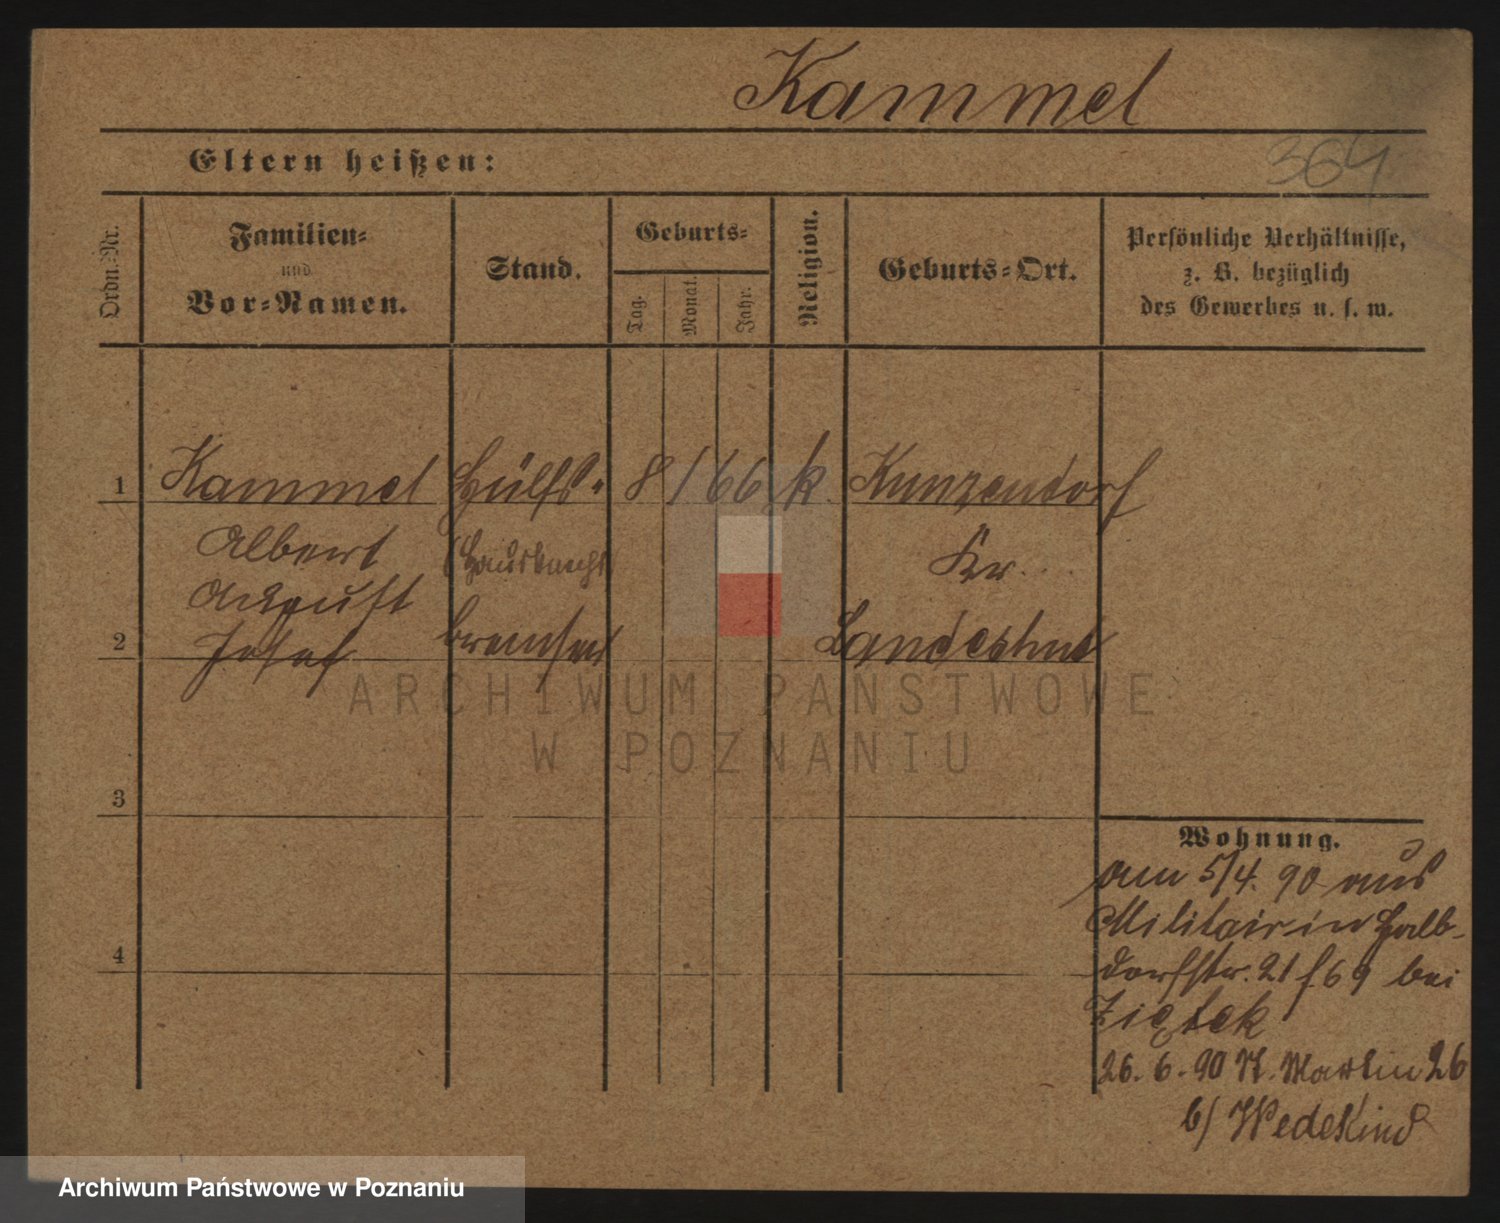 Kammel
364
Eltern heißen:
Ordn.-Nr.
Familien-
und
Vor-Namen.
Stand.
Geburts-
Tag.
Monat.
Jahr.
Religion.
Geburts-Ort.
Persönliche Verhältnisse,
z. B. bezüglich
des Gewerbes u. s. w.
1 Kammel Hülfs- 8/1 66 k. Kunzendorf
Albert (Hausknecht Kr.
August
2 Josef bremser Landeshut
ARCHIWUM PAŃSTWOWE
W POZNANIU
3
Wohnung.
am 5/4. 90 aus
Militair in Halb-
4
dorfstr. 21 f. 69 bei
Ziętek
26. 6. 90 St. Martin 26
b/ Wedekind
Archiwum Państwowe w Poznaniu